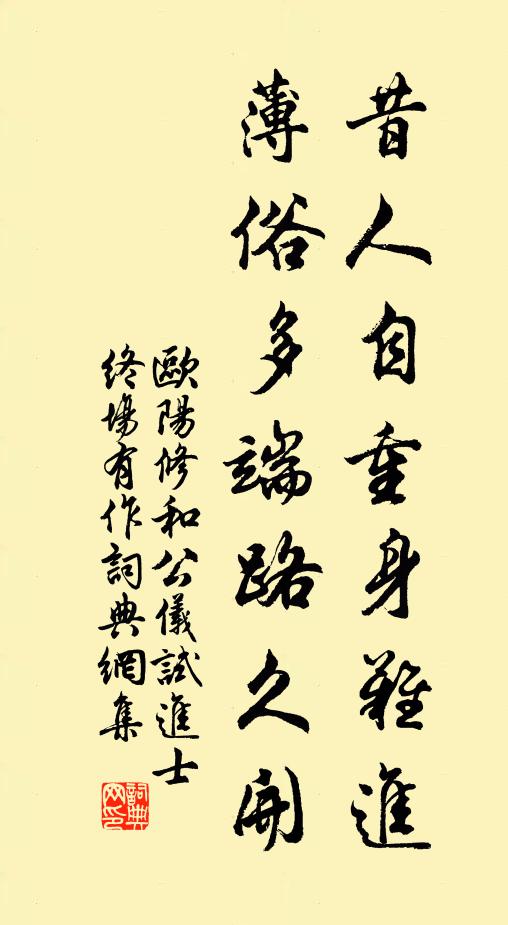 昔人自重身難進
薄俗多端路久開
歐陽修和公儀試進士
終場有作詞典網集
詞典网印